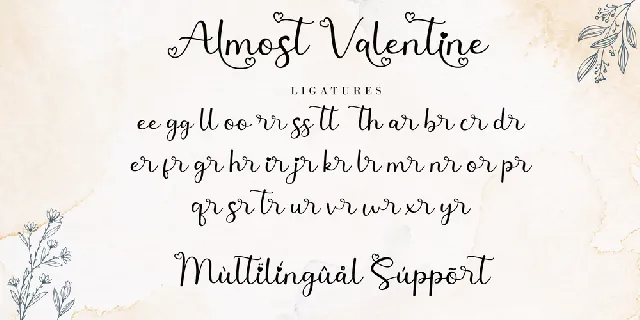 Almost Valentine
LIGATURES
ee gg ll oo rr ss tt Th ar br cr dr
er fr gr hr ir jr kr lr mr nr or pr
qr sr tr ur vr wr xr yr
Mùltïlíngûál Súppōrt